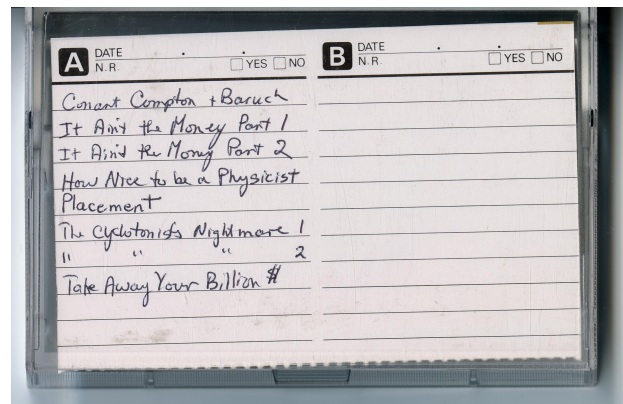 A DATE . .
N.R. YES NO
B DATE . .
N.R. YES NO
Conant Compton + Baruch
It Ain't the Money Part 1
It Ain't the Money Part 2
How Nice to be a Physicist
Placement
The Cyclotonists Nightmare 1
" " " 2
Take Away Your Billion $